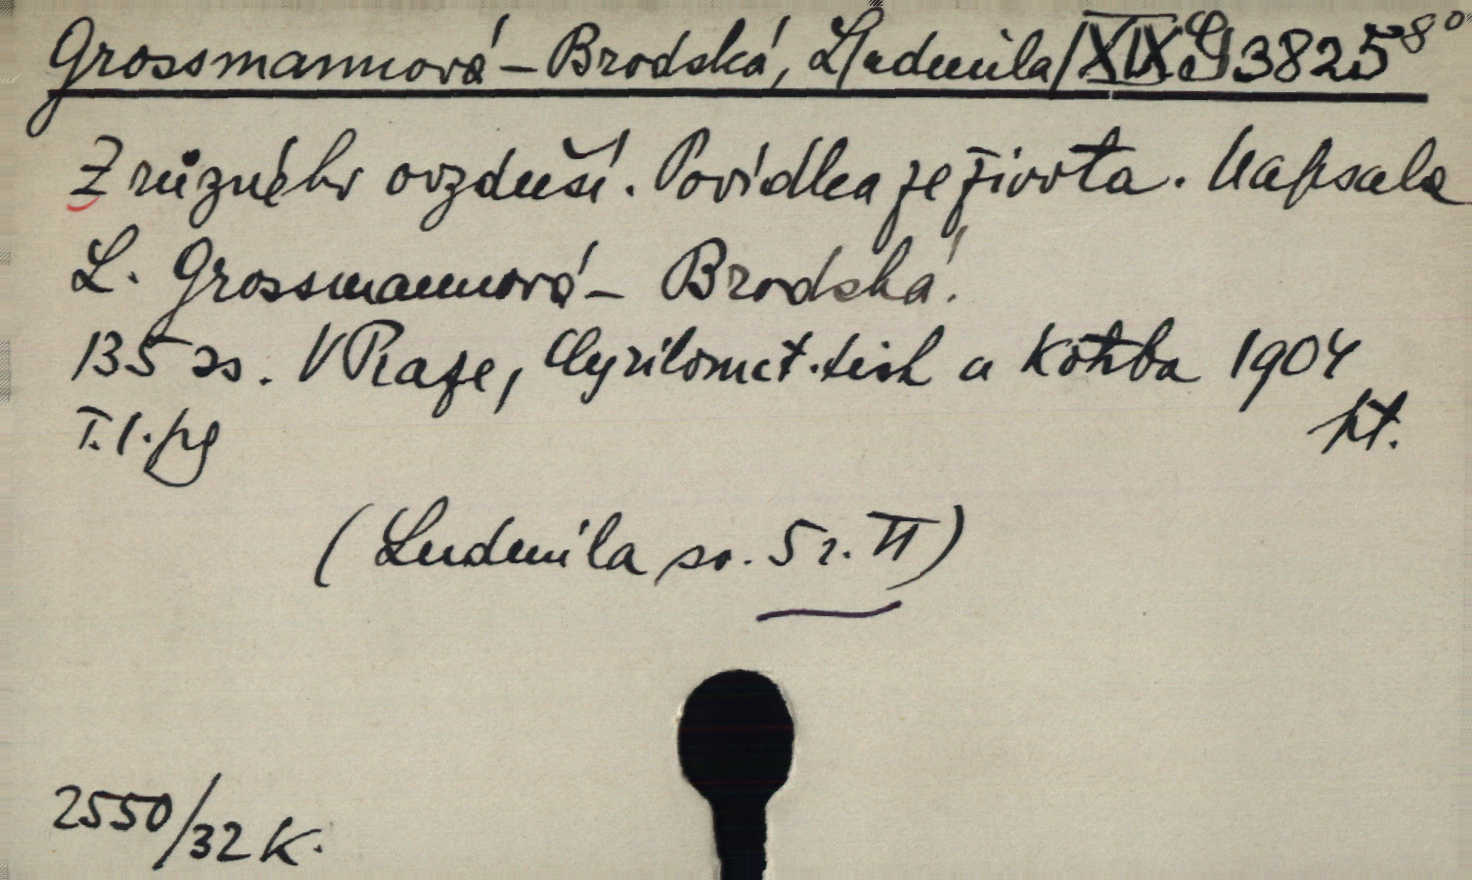 Grossmannová-Brodská, Ludmila XIX G 3825 8°
Z různého ovzduší. Povídka ze života. Napsala
L. Grossmannová-Brodská.
135 ss. V Praze, Cyrilomet. tisk a Kotrba 1904
T. I. pg
kt.
(Ludmila sv. 5 r. VI)
2550/32 K.